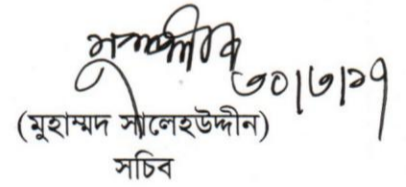 ৩০|৩|১৭
(মুহাম্মদ সালেহউদ্দীন)
সচিব